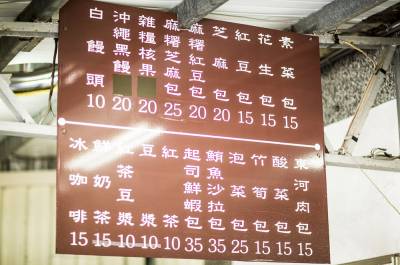 白饅頭10
沖繩黑饅20
雜糧核果20
麻糬芝麻包25
麻糬紅豆包20
芝麻包20
紅豆包15
花生包15
素菜包15
冰咖啡15
鮮奶茶15
紅茶豆漿10
豆漿10
紅茶10
起司鮮蝦包35
鮪魚沙拉包35
泡菜包25
竹筍包15
酸菜包15
東河肉包15